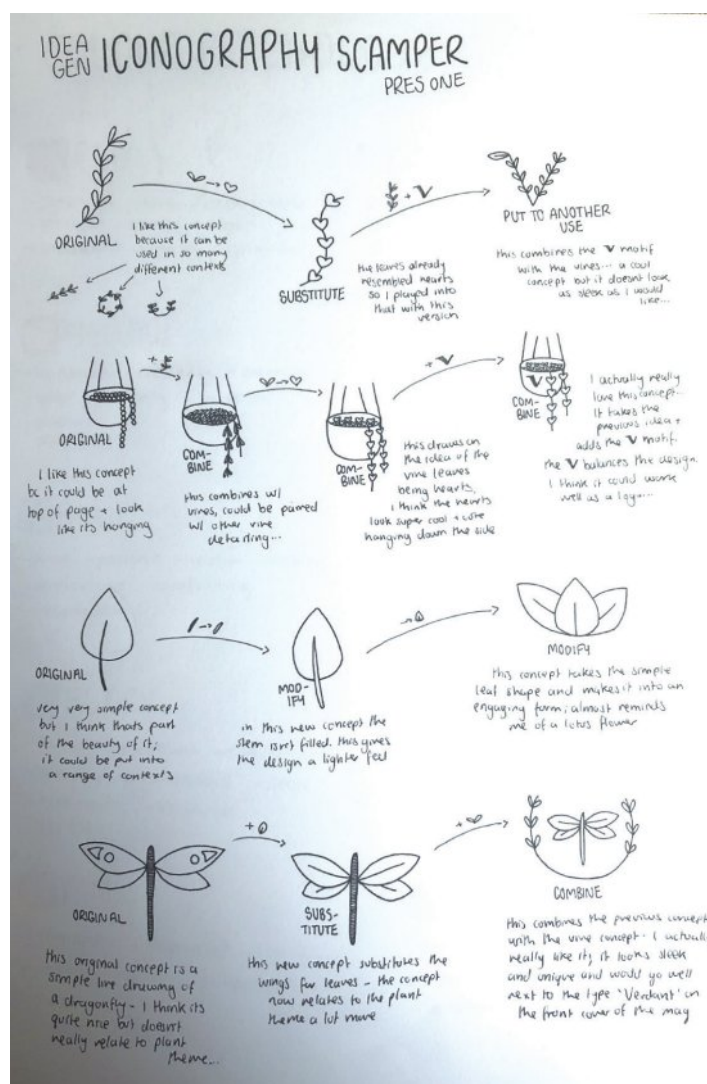 IDEA
GEN
ICONOGRAPHY SCAMPER
PRES ONE
ORIGINAL
I like this concept
because it can be
used in so many
different contexts
SUBSTITUTE
the leaves already
resembled hearts
so I played into
that with this
version
+ V
PUT TO ANOTHER
USE
this combines the V motif
with the vines... a cool
concept but it doesnt look
as sleek as I would
like...
+
ORIGINAL
I like this concept
bc it could be at
top of page + look
like its hanging
COM-
BINE
this combines w/
vines, could be paired
w/ other vine
detailing...
COM-
BINE
this draws on
the idea of the
vine leaves
being hearts,
I think the hearts
look super cool + cute
hanging down the side
+ V
V
COM-
BINE
I actually really
love this concept...
It takes the
previous idea +
adds the V motif.
the V balances the design.
I think it could work
well as a logo...
ORIGINAL
very very simple concept
but I think thats part
of the beauty of it;
it could be put into
a range of contexts
MOD-
IFY
in this new concept the
stem isnt filled. this gives
the design a lighter feel
MODIFY
this concept takes the simple
leaf shape and makes it into an
engaging form; almost reminds
me of a lotus flower
ORIGINAL
this original concept is a
simple line drawing of
a dragonfly - I think its
quite nice but doesnt
really relate to plant
theme...
+
SUBS-
TITUTE
this new concept substitutes the
wings for leaves - the concept
now relates to the plant
theme a lot more
+
COMBINE
this combines the previous concept
with the vine concept. I actually
really like it; it looks sleek
and unique and would go well
next to the type 'Verdant' on
the front cover of the mag